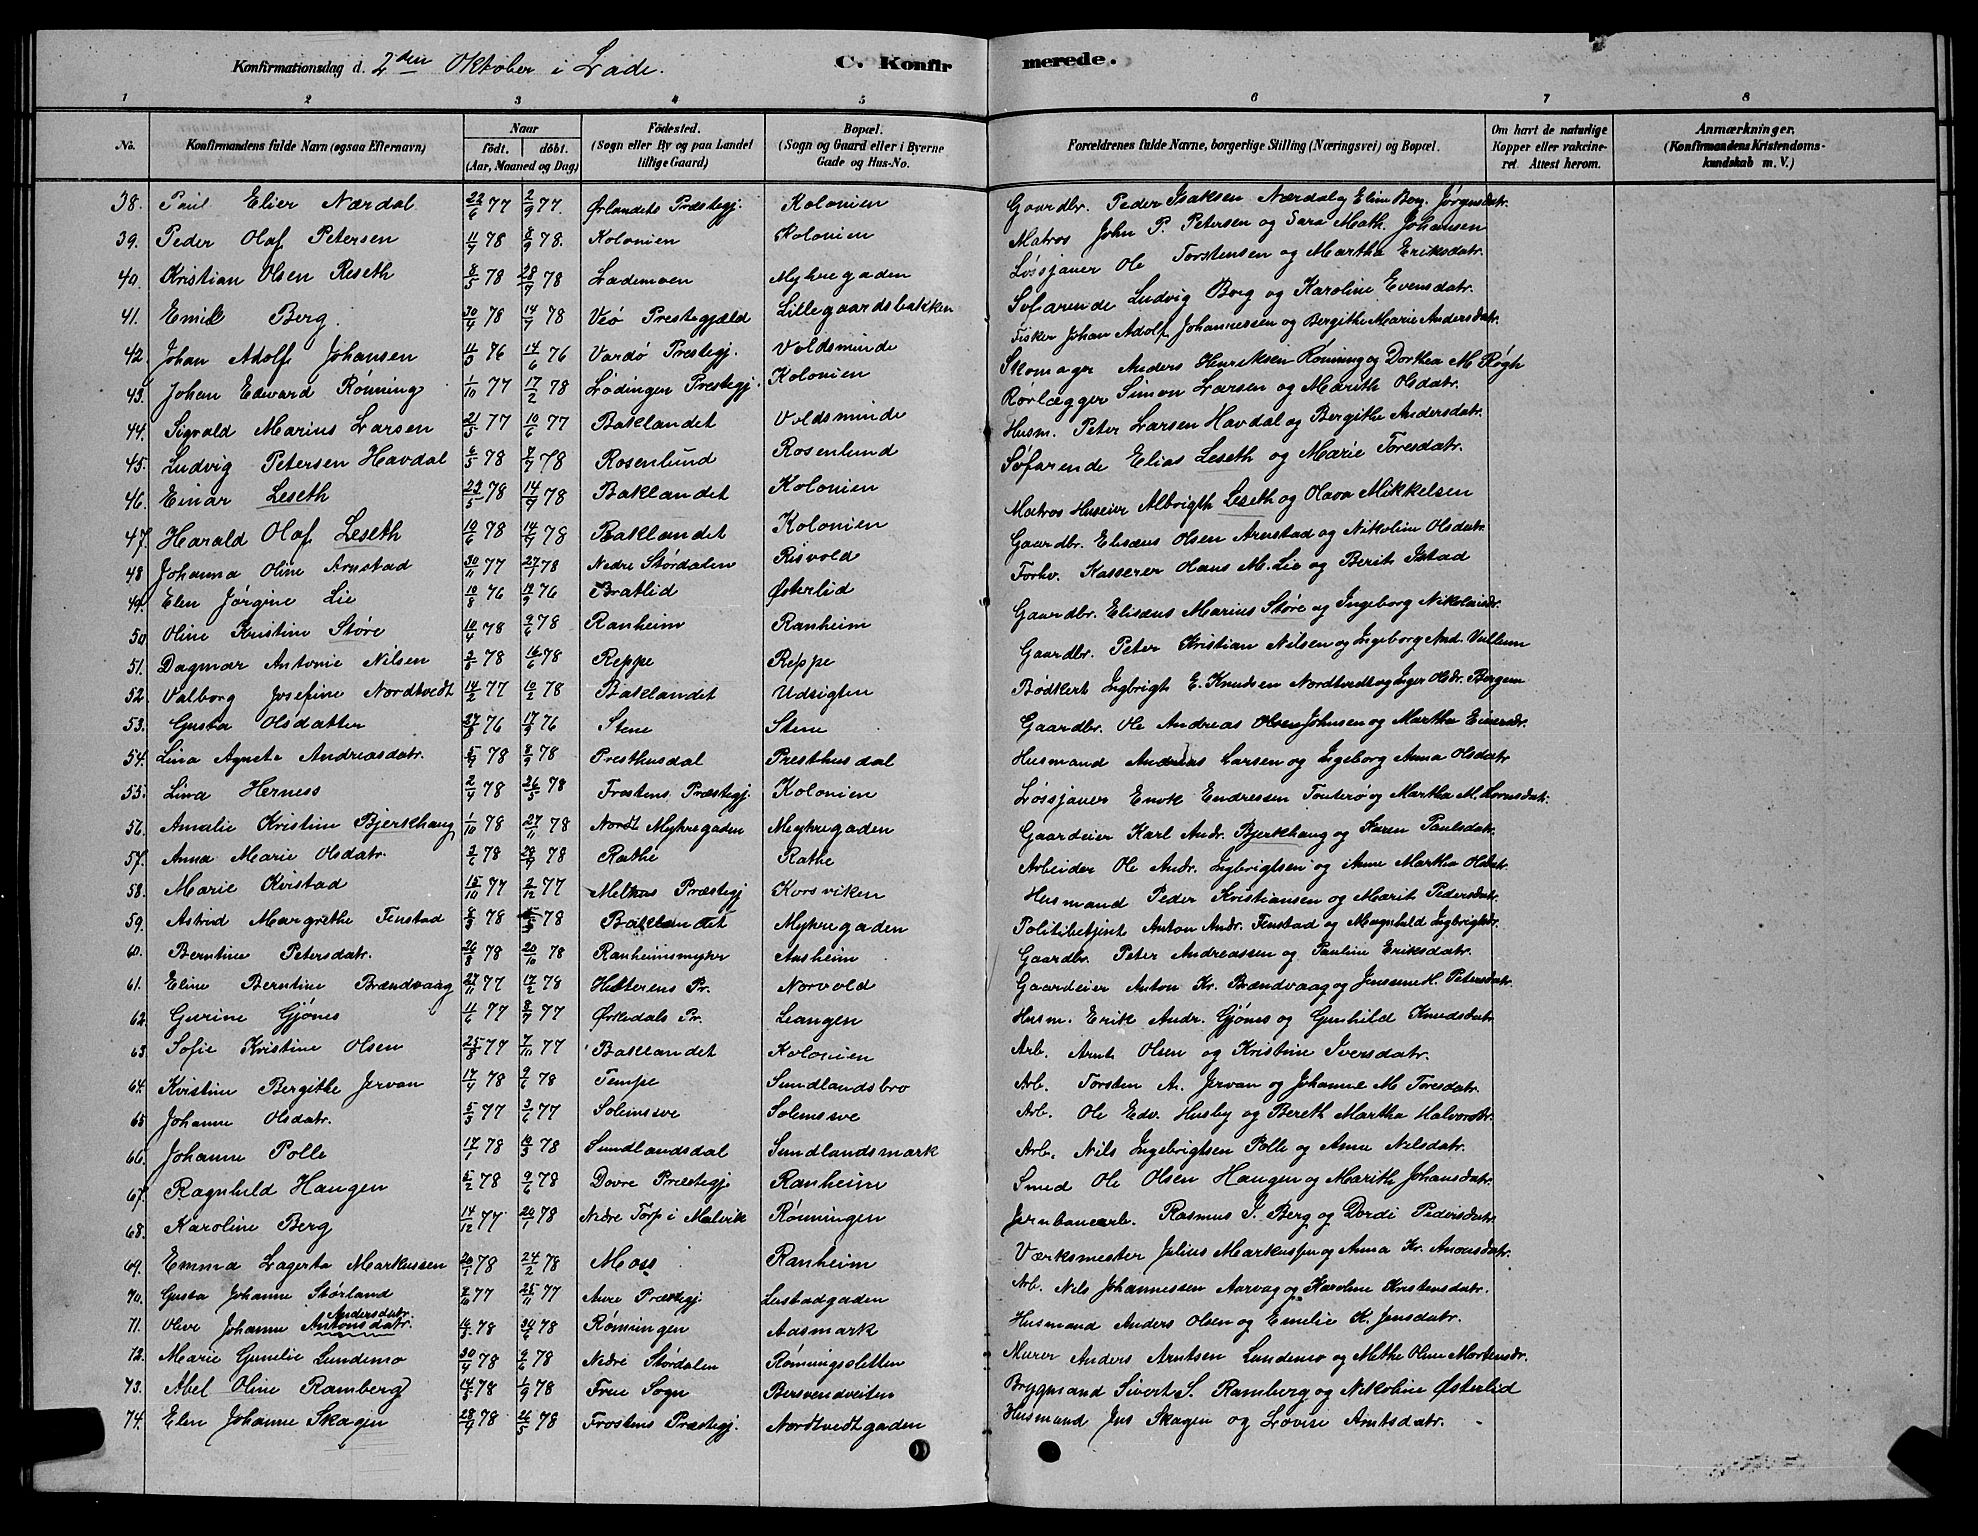 Konfirmationsdag d. 2den Oktober i Lade.
C. Konfirmerede.
1 2 3 4 5 6 7 8
No. Konfirmandens fulde Navn (ogsaa Efternavn) Naar født. døbt. (Aar, Maaned og Dag) Fødested. (Sogn eller By og paa Landet tillige Gaard) Bopæl. (Sogn og Gaard eller i Byerne Gade og Hus-No. Forældrenes fulde Navne, borgerlige Stilling (Næringsvei) og Bopæl. Om havt de naturlige Kopper eller vakcineret. Attest herom. Anmærkninger. (Konfirmandens Kristendomskundskab m. V.)
38. Paul Elier Nærdal 22/6 77 2/9 77. Ørlandets Præstegj. Kolonien Gaardbr. Peder Isaksen Nærdal og Eline Berg. Jørgensdatr.
39. Peder Olaf Petersen 11/7 78 8/9 78. Kolonien Kolonien Matros John P. Petersen og Sara Math. Johansen
40. Kristian Olsen Reseth 8/5 78 28/7 78 Lademoen Myhregaden Løssjauer Ole Torstensen og Martha Eriksdatr.
41. Emil Berg. 30/4 78 14/7 78 Veø Prestegjæld Lillegaardsbakken Søfarende Ludvig Berg og Karoline Evensdatr.
42. Johan Adolf Johansen 11/3 76 14/6 76 Vardø Prestegj. Voldsminde Fisker Johan Adolf Johannessen og Bergithe Marie Andersdatr.
43. Johan Edward Rønning 1/10 77 17/2 78 Lødingen Prestegj. Kolonien Skomager Anders Henriksen Rønning og Dorthea M. Røgh
44. Sigvald Marius Larsen 21/5 77 10/6 77 Baklandet Voldsminde Rørlægger Simon Larsen og Marith Olsdatr.
45. Ludvig Petersen Havdal 6/5 78 7/7 78 Rosenlund Rosenlund Husm. Peter Larsen Havdal og Bergithe Andersdatr.
46. Einar Leseth 23/5 78 14/7 78 Baklandet Kolonien Søfarende Elias Leseth og Marie Toresdatr.
47. Harald Olaf Leseth 10/6 78 14/7 78 Baklandet Kolonien Matros Huseier Albrigth Leseth og Olava Mikkelsen
48 Johanna Oline Arnstad 30/11 77 27/1 78 Nedre Størdalen Risvold Gaardbr. Elisæus Olsen Arnstad og Nikoline Olsdatr.
49. Elen Jørgine Lie 10/8 76 17/9 76 Bratlid Østerlid Forhv. Kasserer Hans M. Lie og Berit Istad
50 Oline Kristine Støre 10/4 78 9/6 78 Ranheim Ranheim Gaardbr. Elisæus Marius Støre og Ingeborg Nikolaisdr.
51. Dagmar Antonie Nilsen 78 16/6 78 Reppe Reppe Gaardbr. Peter Kristian Nilsen og Ingeborg And. Vullum
52. Valborg Josefine Nordtvedt 14/2 77 10/2 78 Baklandet Udsigten Bødkert Ingbrigt E. Knudsen Nordtvedt og Inger Olsdr. Bergem
53. Gusta Olsdatter 76 76 Stene Stene Gaardbr. Ole Andreas Olsen Johnsen og Martha Einersdr.
54. Lina Agnete Andreasdatr. 78 8/9 78 Presthusdal Presthusdal Husmand Andreas Larsen og Ingeborg Anna Olsdatr
55. Lina Herness 2/4 78 26/5 78 Frostens Præstegj Kolonien Løssjauer Enok Endressen Tauterø og Martha M. Lornsdatr.
56. Amalie Kristine Bjerkhaug 1/10 78 27/11 78 Nordt Myhregaden Myhregaden Gaardeier Karl Andr. Bjerkhaug og Karen Paulsdatr.
57. Anna Marie Olsdatr. 78 78 Rathe Rathe Arbeider Ole Andr. Ingbrigtsen og Anne Martha Olsdatr.
58. Marie Kvistad 15/10 77 2/12 77 Melhus Præstegj Korsviken Husmand Peder Kristiansen og Marit Pedersdatr.
59. Astrid Margrethe Finstad 78 78 Baklandet Myhregaden Politibetjent Anton Andr. Finstad og Magnhild Ingbrigtsdr.
60. Berntine Petersdatr. 26/8 78 20/10 78 Ranheimsmyhr Ansheim Gaardbr. Peter Andreassen og Pauline Eriksdatr.
61. Eline Berntine Brændvaag 27/11 77 17/2 78 Hitterens Pr. Norvold Gaardeier Anton Kr. Brændvaag og Jenssine H. Petersdatr.
62. Gurine Gjønes 11/6 77 8/7 77 Ørkedals Pr. Leangen Husm. Erik Andr. Gjønes og Gunhild Knudsdatr
63. Sofie Kristine Olsen 25/8 77 7/10 77 Baklandet Kolonien Arb. Arnt Olsen og Kristine Iversdatr.
64. Kristine Bergithe Jervan 17/4 78 9/6 78 Tempe Sundlandsbro Arb. Torsten A. Jervan og Johanne M Toresdatr.
65 Johanne Olsdatr. 5/3 77 3/6 77 Solemsve Solemsve Arb. Ole Edv. Husby og Bereth Martha Halvorsdtr.
66. Johanne Polle 17/1 78 10/3 78 Sundlandsdal Sundlandsmark Arb. Nils Ingebrigtsen Polle og Anne Nilsdatr.
67. Ragnhild Haugen 5/2 78 9/6 78 Dovre Præstegj Ranheim Smed Ole Olsen Haugen og Marith Johansdatr.
68. Karoline Berg 14/12 77 20/1 78 Nedre Torp i Malvik Rønningen Jernbanearb. Rasmus J. Berg og Dordi Pedersdatr.
69. Emma Lagerta Markussen 20/1 78 24/2 78 Moss Ranheim Værksmester Julius Markussen og Anna Kr. Anonsdatr.
70. Gusta Johanne Størland 77 25/11 77 Aure Præstegj Leistadgaden Arb. Nils Johannessen Aarvag og Karoline Kristensdatr.
71. Olive Johanne Antonsdatr. Andersdatr. 78 78 Rønningen Aasmark Husmand Anders Olsen og Emelie K. Jensdatr.
72. Marie Gunelie Lundemo 30/4 78 9/6 78 Nedre Stördalen Rønningsletten Murer Anders Arntsen Lundemo og Methe Oline Mortensdr.
73. Abel Oline Ramberg 78 1/9 78 Frue Sogn Bersvendveiten Bryggmand Sivert S. Ramberg og Nikoline Østerlid
74. Elen Johanne Skagen 78 26/5 78 Frostens Præstegj. Nordtvedtgaden Husmand Jens Skagen og Lovise Arntsdatr.